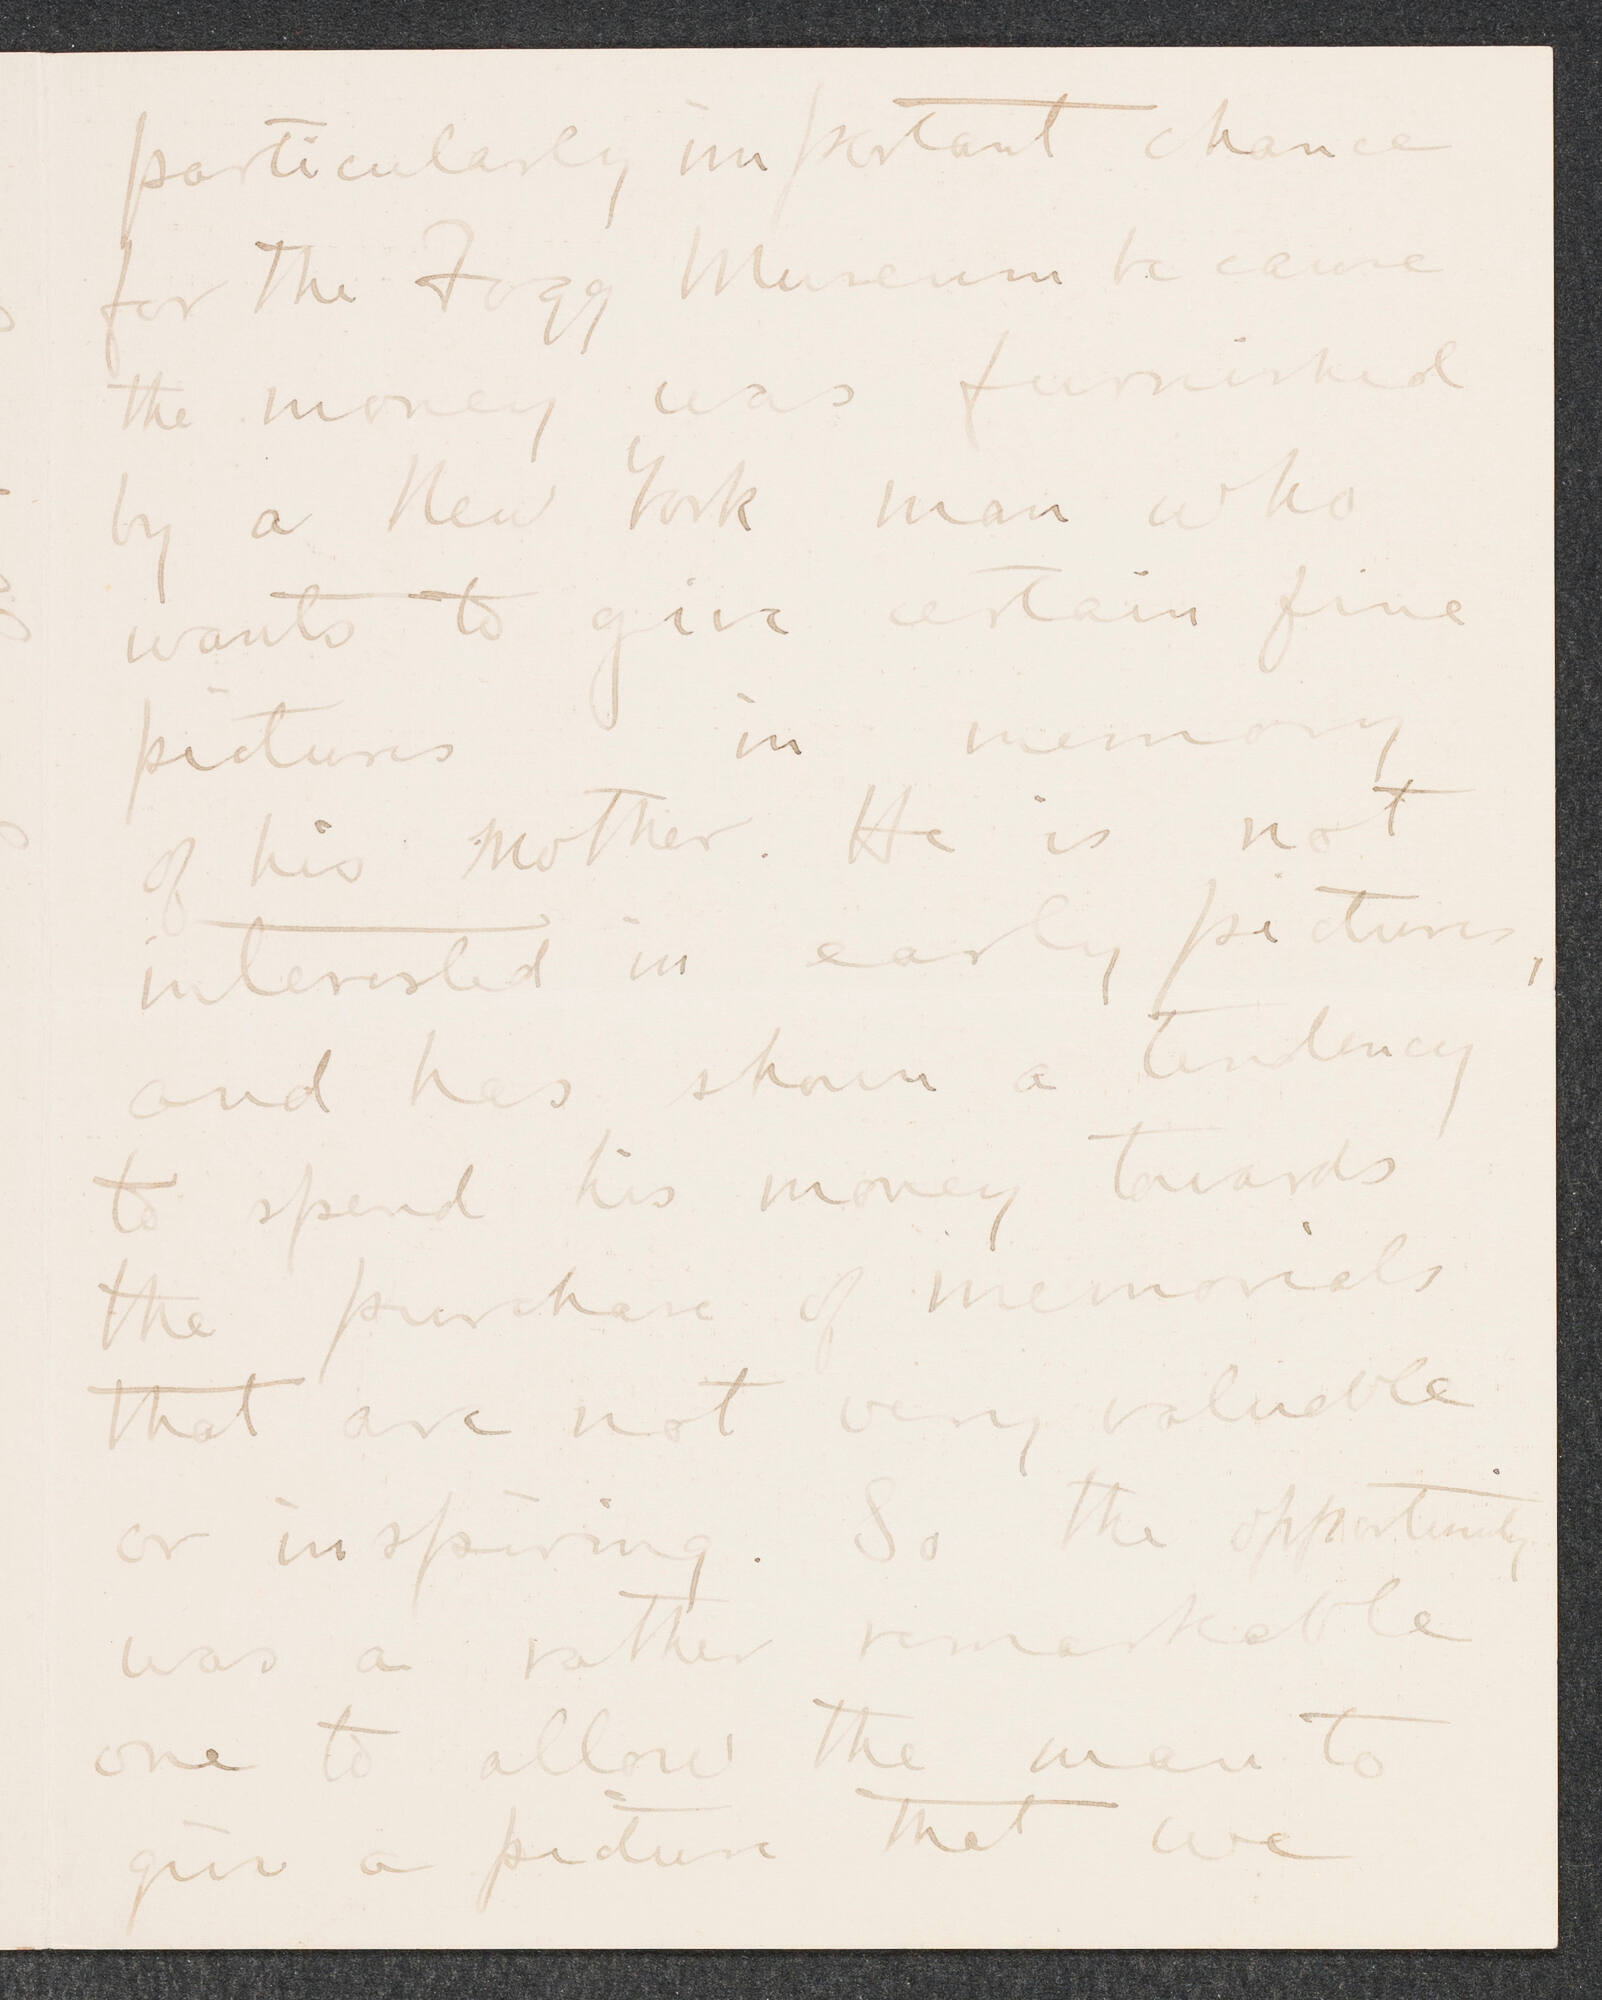 particularly important chance
for the Fogg Museum because
the money was furnished
by a New York man who
wants to give certain fine
pictures in memory
of his mother. He is not
interested in early pictures,
and has shown a tendency
to spend his money towards
the purchase of memorials
that are not very valuable
or inspiring. So the opportunity
was a rather remarkable
one to allow the man to
give a picture that we